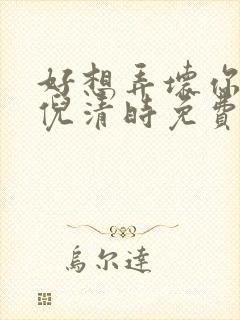 好想弄壞你
倪清時免費
烏尔達